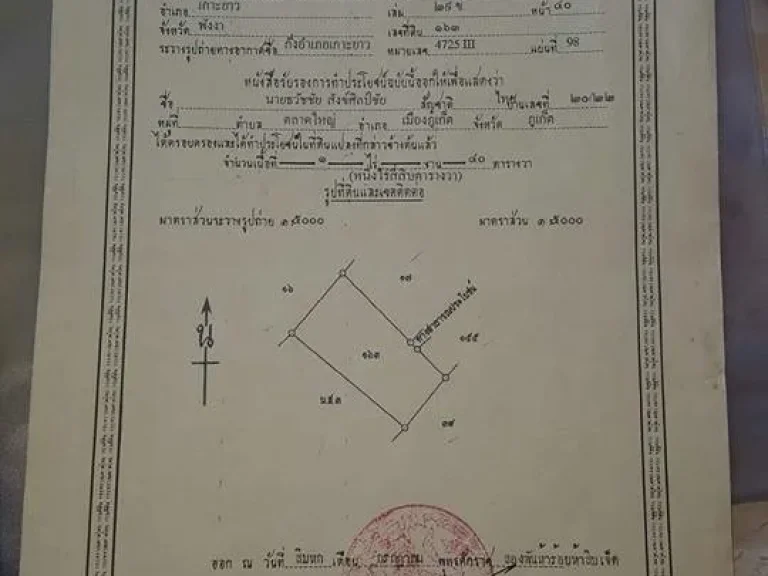 อำเภอ เกาะยาว เล่ม ๒๙ ข หน้า ๔๐
จังหวัด พังงา เลขที่ดิน ๑๖๓
ระวางรูปถ่ายทางอากาศชื่อ กิ่งอำเภอเกาะยาว หมายเลข 4725 III แผ่นที่ 98
หนังสือรับรองการทำประโยชน์ฉบับนี้ออกให้เพื่อแสดงว่า
ชื่อ นายธวัชชัย สังข์ศิลป์ชัย สัญชาติ ไทย บ้านเลขที่ ๒๐/๒๒
หมู่ที่ ตำบล ตลาดใหญ่ อำเภอ เมืองภูเก็ต จังหวัด ภูเก็ต
ได้ครอบครองและได้ทำประโยชน์ในที่ดินแปลงที่กล่าวข้างต้นแล้ว
จำนวนเนื้อที่ ๑ ไร่ งาน ๔๐ ตารางวา
(หนึ่งไร่สี่สิบตารางวา)
รูปที่ดินและเขตติดต่อ
มาตราส่วนระวางรูปถ่าย ๑:๕๐๐๐ มาตราส่วน ๑:๕๐๐๐
๑๖
๑๗
ทางสาธารณประโยชน์
๑๕๕
น
๑๖๓
น.ส.๓
๓๙
ออก ณ วันที่ สิบหก เดือน กรกฎาคม พุทธศักราช สองพันห้าร้อยห้าสิบเจ็ด